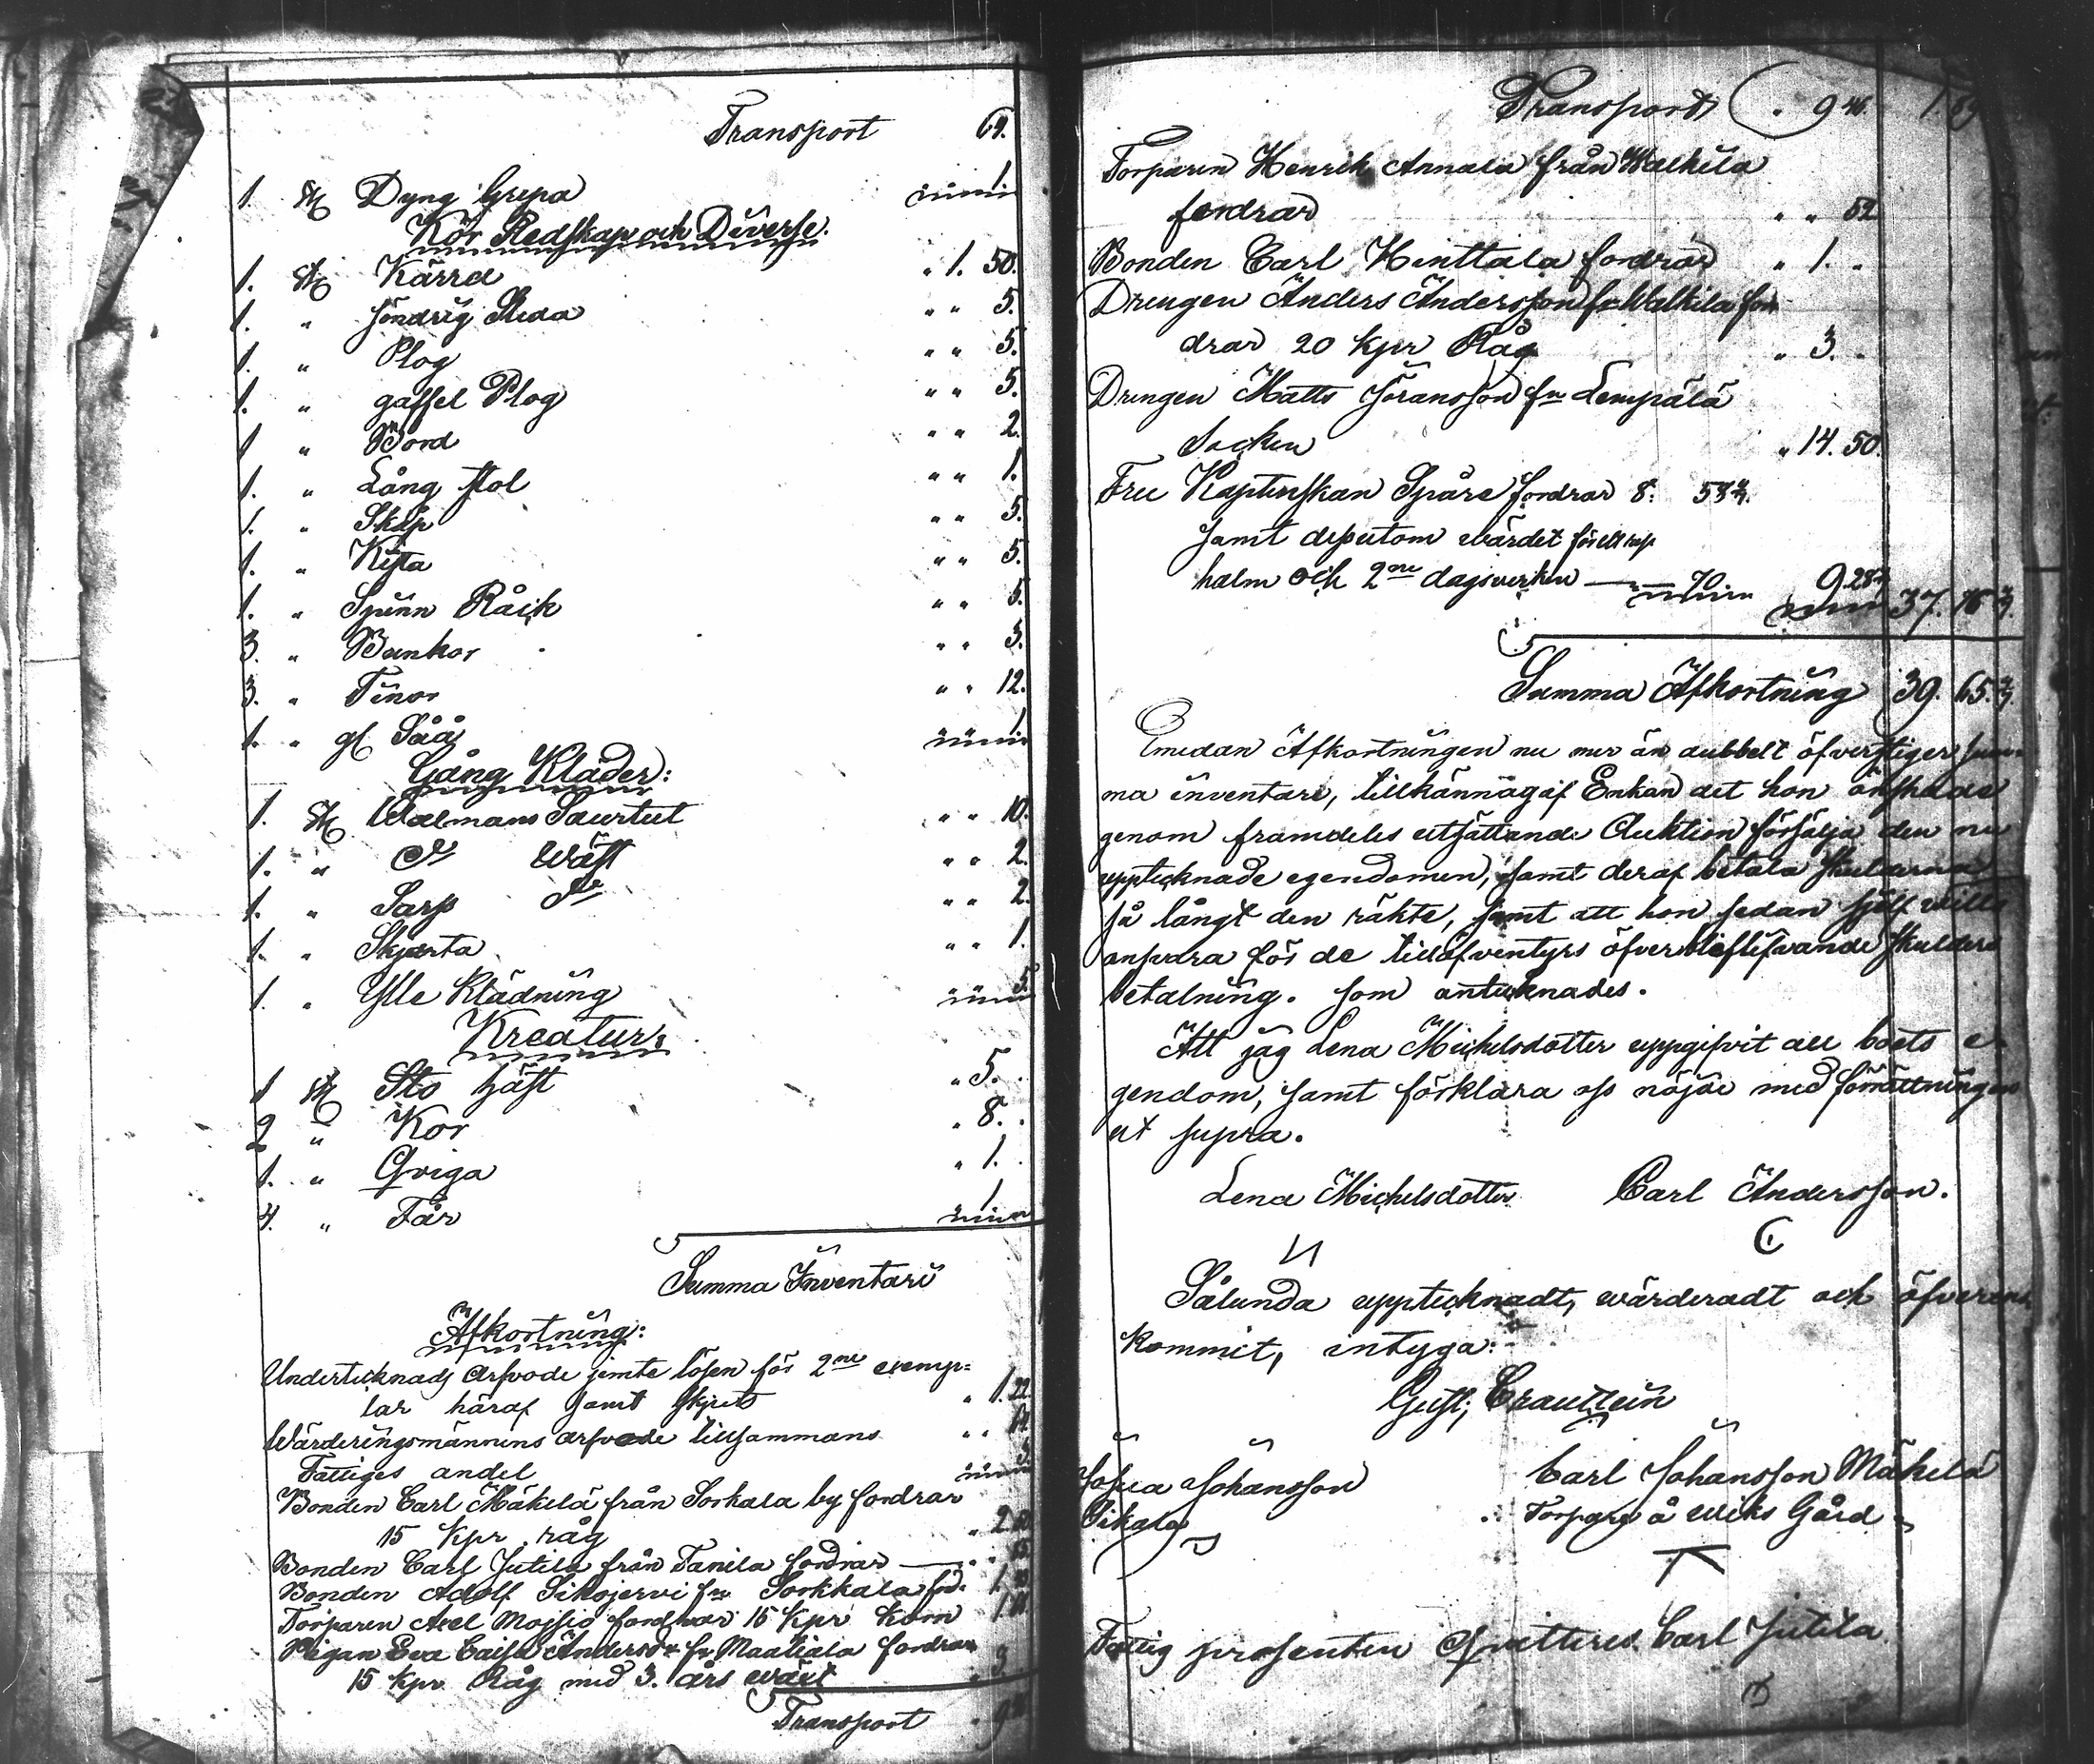 Transport 64.
1. st Dyng Grepa 1.
Kör Redskap och Diverse.
1. st Kärra " 1. 50.
1. " söndrig Sleda " " 5.
1. " Plog " " 5.
1. " gaffel Plog " " 5.
1 " Bord " " 2.
1. " Lång stol " " 1.
1. " Skåp " " 5.
1. " Kista " " 5.
1. " Spinn Råck " " 5.
3. " Bunkor " " 3.
3. " Tinor " " 12.
1. " gl Såå 1.
Gång Kläder:
1. st Walmans Surtut " " 10.
1. " do Wäst " " 2.
1. " Sarp do " " 2.
1. " Skjorta " " 1.
1. " Ylle Klädning 5.
Kreatur:
1 st Sto häst " 5. .
2 " Kor " 8. .
1. " Qviga " 1. .
4. " Får 1.
Summa Inventarii
Afkortning:
Undertecknads arfvode jemte lösen för 2ne exemp=
lar häraf samt skjuts " 1. 22
Wärderingsmännens arfvode tillsammans " "
Fattiges andel 3.
Bonden Carl Mäkelä från Sorkala by fordrar
15 kpr råg " 2
Bonden Carl Jutila från Tanila fordrar
Bonden Adolf Sikojervi frn Sorkkala ford. 1.
Torparen Axel Moisio fordrar 15 kpr korn 1.
Pigan Eva Caisa Andersdr fr Maatiala fordrar
15 kpr Råg med 3. års wäxt " 3
Transport " 9 46
Transport " 9 46. 1. 89
Torparen Henrik Annala från Walkila
fordrar " " 52
Bonden Carl Hinttala fordrar " 1. "
Drengen Anders Andersson fr Walkila for
drar 20 kpr Råg " 3. "
Drengen Matts Göransson fn Lempälä
Socken " 14. 50.
Fru Kaptenskan Spåre fordrar 8. 58
samt desutom wärdet för ett
halm och 2ne dagsverken — " 70 9 28 37. 76
Summa Afkortning 39. 65.
Emedan Afkortningen nu mer än dubbelt öfverstiger sum
ma inventarii, tillkännagaf Enkan det hon önskade
genom framdeles utsättande Auktion försälja den nu
upptecknade egendomen, samt deraf betala skulderna
så långt den räkte, samt att hon sedan sjelf wille
ansvara för de tilläfventyrs öfverblefvande skulders
betalning. som antecknades.
Att jag Lena Michelsdotter uppgifvit all boets e-
gendom, samt förklara oss nöjde med förrättningen
ut supra.
Lena Michelsdotter Carl Andersson.
Sålunda upptecknadt, wärderadt och öfverens
kommit, intyga:
Gust; Crautzein
Josua Johansson Carl Johansson Mäkelä
Sikala Torpare å Wiks Gård
Fattig prosenten Qvitteres Carl Jutila